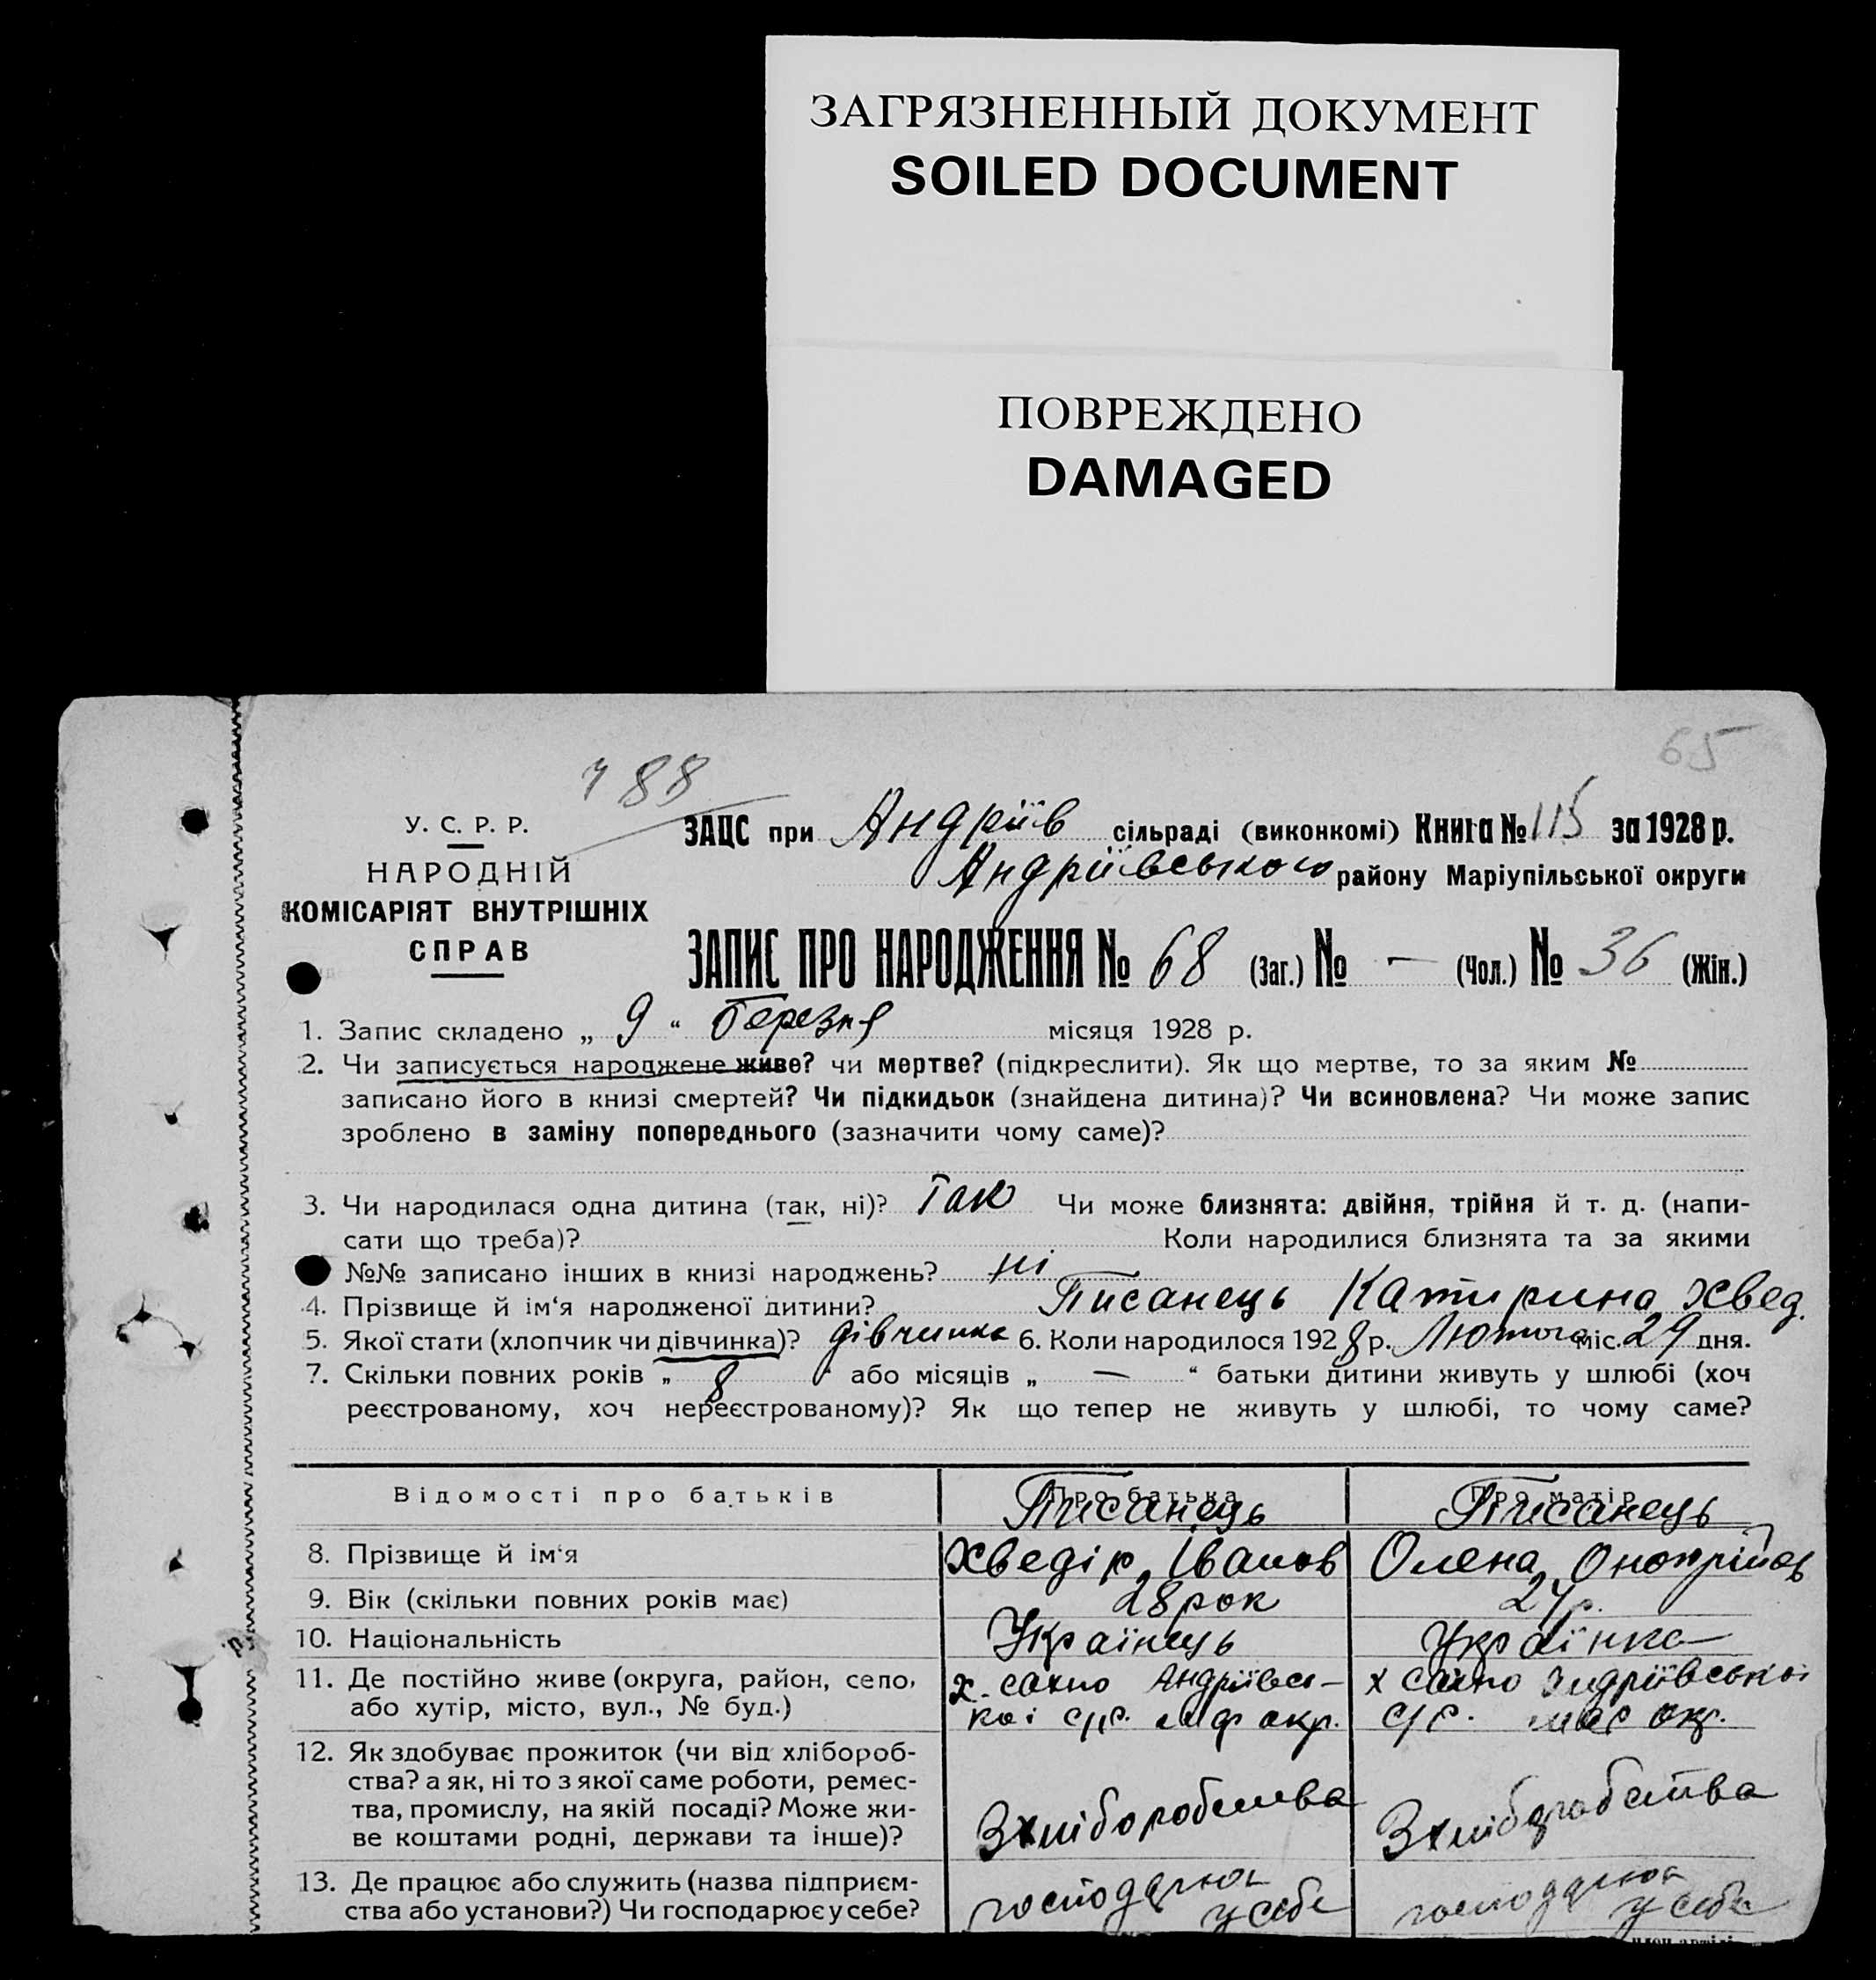 ЗАГРЯЗНЕННЫЙ ДОКУМЕНТ
SOILED DOCUMENT
ПОВРЕЖДЕНО
DAMAGED
65
788
У. С. Р. Р.
НАРОДНІЙ
КОМІСАРІЯТ ВНУТРІШНІХ
СПРАВ
ЗАЦС при Андріїв сільраді (виконкомі) Книга № 115 за 1928 р.
Андріївського району Маріупільської округи
ЗАПИС ПРО НАРОДЖЕННЯ № 68 (Заг.) № — (Чол.) № 36 (Жін.)
1. Запис складено „ 9 “ Березня місяця 1928 р.
2. Чи записується народжене живе? чи мертве? (підкреслити). Як що мертве, то за яким №
записано його в книзі смертей? Чи підкидьок (знайдена дитина)? Чи всиновлена? Чи може запис
зроблено в заміну попереднього (зазначити чому саме)?
3. Чи народилася одна дитина (так, ні)? Так Чи може близнята: двійня, трійня й т. д. (напи-
сати що треба)? Коли народилися близнята та за якими
№№ записано інших в книзі народжень? ні
4. Прізвище й ім‘я народженої дитини? Писанець Катирина Хвед.
5. Якої стати (хлопчик чи дівчинка)? дівчинка 6. Коли народилося 1928 р. Лютого міс. 29 дня.
7. Скільки повних років „ 8 “ або місяців „ — “ батьки дитини живуть у шлюбі (хоч
реєстрованому, хоч нереєстрованому)? Як що тепер не живуть у шлюбі, то чому саме?
Відомості про батьків Про батька Про матір
Писанець Писанець
8. Прізвище й ім‘я Хведір Іванов Олена Онохрійов
9. Вік (скільки повних років має) 28 рок
10. Національність Українець Українка
11. Де постійно живе (округа, район, село, х. сахно Андріївсь- х сахно Андріївської
або хутір, місто, вул., № буд.) кої с/р. окр. с/р. мар окр.
12. Як здобуває прожиток (чи від хлібороб-
ства? а як, ні то з якої саме роботи, ремес-
тва, промислу, на якій посаді? Може жи- Зхліборобства Зхліборобства
ве коштами родні, держави та інше)?
13. Де працює або служить (назва підприєм- господарюя господарюя
ства або установи?) Чи господарює у себе? у себе у себе